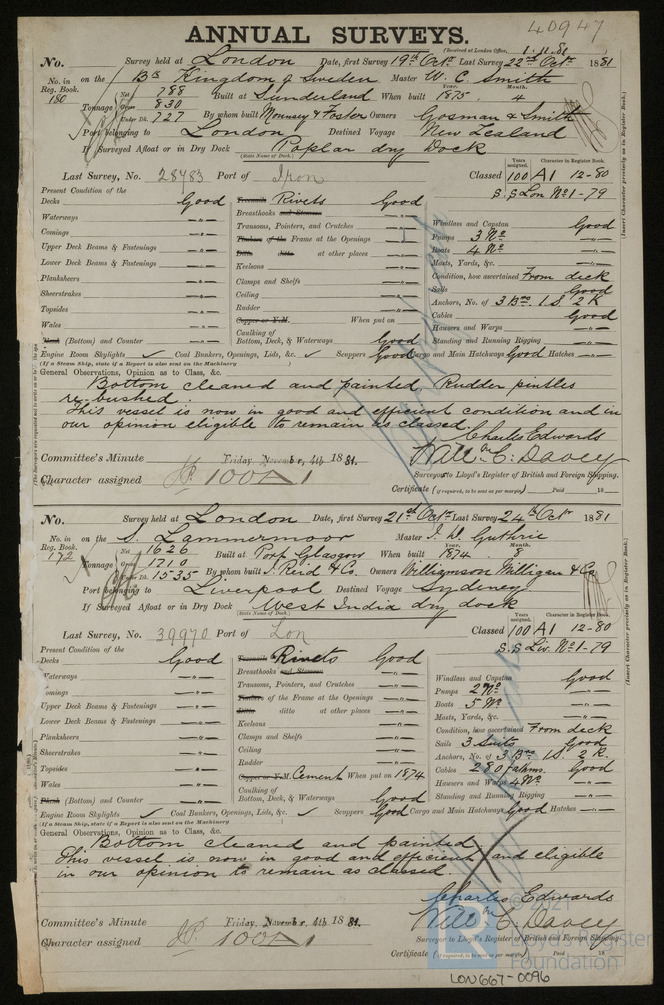 40947
ANNUAL SURVEYS.
(Received at London Office, 1.11.81
No. Survey held at London Date, first Survey 19th Octr Last Survey 22nd Octr 1881
No. in Reg. Book. 180 on the Bk Kingdom of Sweden Master W. C. Smith
Tonnage Net 788 Gross 830 Under Dk. 727 Built at Sunderland When built Year. 1875 Month. 4
By whom built Mounsey & Foster Owners Gosman & Smith
Port belonging to London Destined Voyage New Zealand
If Surveyed Afloat or in Dry Dock Poplar dry Dock
(State Name of Dock.)
Last Survey, No. 28483 Port of Iron
Years assigned. Character in Register Book.
Classed 100 A1 12-80
S.S Lon No 1-79
(Insert Character precisely as in Register Book.)
Present Condition of the
Decks Good
Waterways —"—
Comings —"—
Upper Deck Beams & Fastenings —"—
Lower Deck Beams & Fastenings —"—
Planksheers —"—
Sheerstrakes —"—
Topsides —"—
Wales —"—
Plank (Bottom) and Counter —"—
Treenails Rivets Good
Breasthooks and Stemson —"—
Transoms, Pointers, and Crutches —"—
Timbers of the Frame at the Openings
Ditto ditto at other places —"—
Keelsons —"—
Clamps and Shelfs —"—
Ceiling —"—
Rudder —"—
Copper or Y.M. When put on
Caulking of Bottom, Deck, & Waterways Good
Windlass and Capstan Good
Pumps 3 No —"—
Boats 4 No —"—
Masts, Yards, &c. —"—
Condition, how ascertained From deck
Sails Good
Anchors, No. of 3 Brs. 1 S. 2 K
Cables Good
Hawsers and Warps —"—
Standing and Running Rigging —"—
Engine Room Skylights ✓ Coal Bunkers, Openings, Lids, &c. ✓ Scuppers Good Cargo and Main Hatchways Good Hatches —"—
(If a Steam Ship, state if a Report is also sent on the Machinery )
General Observations, Opinion as to Class, &c.
Bottom cleaned and painted, Rudder pintles
re-bushed.
This vessel is now in good and efficient condition and in
our opinion eligible to remain as classed.
Charles Edwards
Will m C. Davey
Surveyors to Lloyd's Register of British and Foreign Shipping.
Committee's Minute Friday, November, 4th 1881.
Character assigned 100A1
Certificate (if required, to be sent as per margin) Paid 18
No. Survey held at London Date, first Survey 21st Octr Last Survey 24th Octr 1881
No. in Reg. Book. 172 on the S. Lammermoor Master J. D. Guthrie
Tonnage Net 1626 Gross 1710 Under Dk. 1535 Built at Port Glasgow When built Year. 1874 Month. 8
By whom built J. Reid & Co. Owners Williamson Milligan & Co
Port belonging to Liverpool Destined Voyage Sydney
If Surveyed Afloat or in Dry Dock West India dry dock
(State Name of Dock.)
Last Survey, No. 39970 Port of Lon
Years assigned. Character in Register Book.
Classed 100 A1 12-80
S.S Liv. No 1-79
(Insert Character precisely as in Register Book.)
Present Condition of the
Decks Good
Waterways —"—
Comings —"—
Upper Deck Beams & Fastenings —"—
Lower Deck Beams & Fastenings —"—
Planksheers —"—
Sheerstrakes —"—
Topsides —"—
Wales —"—
Plank (Bottom) and Counter —"—
Treenails Rivets Good
Breasthooks and Stemson —"—
Transoms, Pointers, and Crutches —"—
Timbers of the Frame at the Openings —"—
Ditto ditto at other places —"—
Keelsons —"—
Clamps and Shelfs —"—
Ceiling —"—
Rudder —"—
Copper or Y.M. Cement When put on 1874
Caulking of Bottom, Deck, & Waterways Good
Windlass and Capstan Good
Pumps 2 No —"—
Boats 5 No —"—
Masts, Yards, &c. —"—
Condition, how ascertained From deck
Sails 3 Suits Good
Anchors, No. of 3 Brs 1 S. 2 K.
Cables 280 fathms. Good
Hawsers and Warps 4 No —"—
Standing and Running Rigging —"—
Engine Room Skylights ✓ Coal Bunkers, Openings, Lids, &c. ✓ Scuppers Good Cargo and Main Hatchways Good Hatches —"—
(If a Steam Ship, state if a Report is also sent on the Machinery )
General Observations, Opinion as to Class, &c.
Bottom cleaned and painted
This vessel is now in good and efficient and eligible
in our opinion to remain as classed.
Charles Edwards
Will m C Davey
Surveyor to Lloyd's Register of British and Foreign Shipping.
Committee's Minute Friday, November, 4th 1881.
Character assigned 100A1
Certificate (if required, to be sent as per margin) Paid 18
© 2021
Lloyd's Register
Foundation
LON667-0096